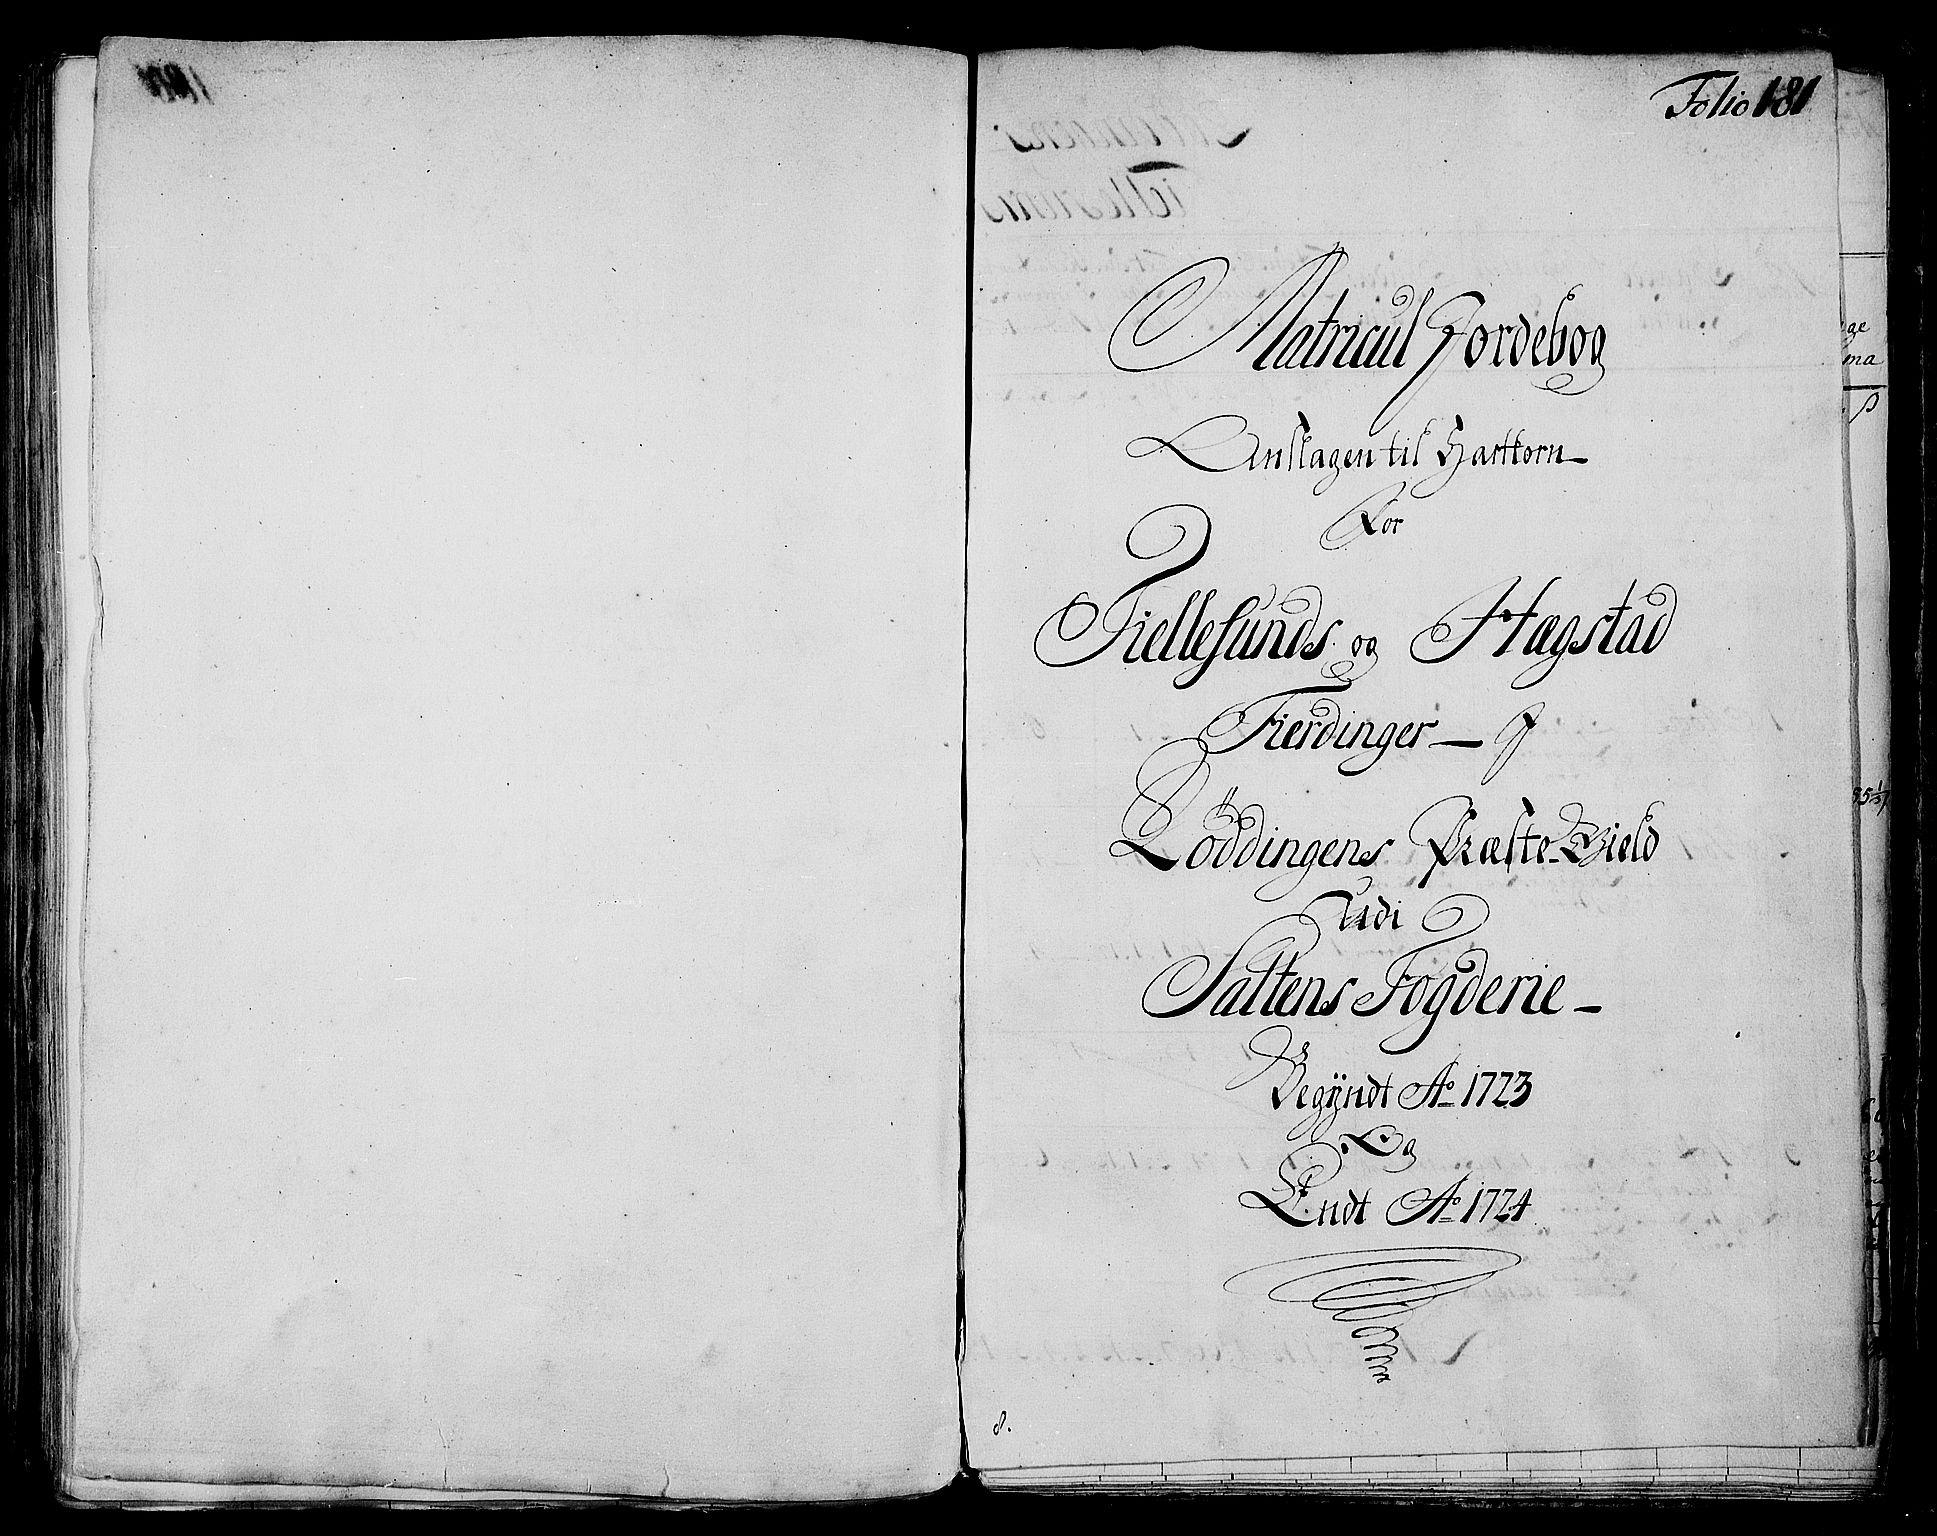 Folio 181
Matricul Jordebog
Anslagen til Hartkorn
For
Fiellesunds og Hægstad
Fierdinger - J
Löddingens Præste-Gield
Udi
Saltens Fogderie -
Begÿndt Ao 1723
Og
Endt Ao 1724
8.